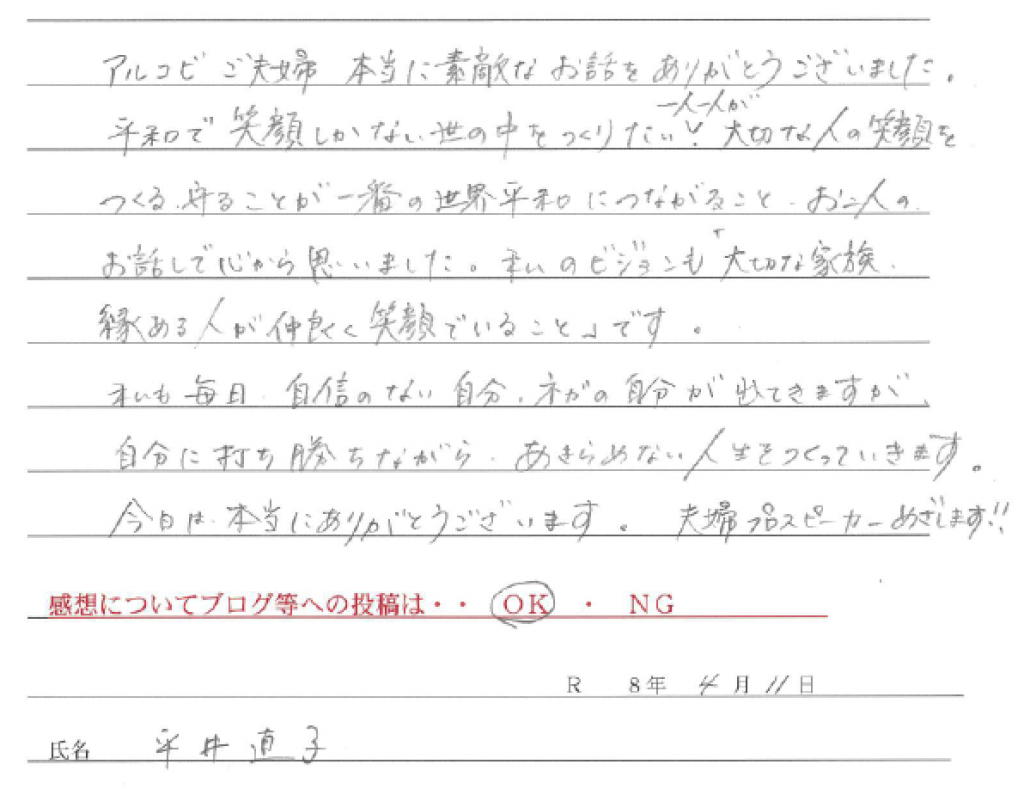 アルコビご夫婦 本当に素敵なお話をありがとうございました。
平和で笑顔しかない世の中をつくりたい! 一人一人が大切な人の笑顔を
つくる、守ることが一番の世界平和につながること、お二人の
お話しで心から思いました。私のビジョンも「大切な家族、
縁ある人が仲良く笑顔でいること」です。
私も毎日、自信のない自分、ネガの自分が出てきますが、
自分に打ち勝ちながら、あきらめない人生をつくっていきます。
今日は、本当にありがとうございます。 夫婦プロスピーカーめざします!!
感想についてブログ等への投稿は・・ OK ・ NG
R 8年 4月 11日
氏名 平井直子